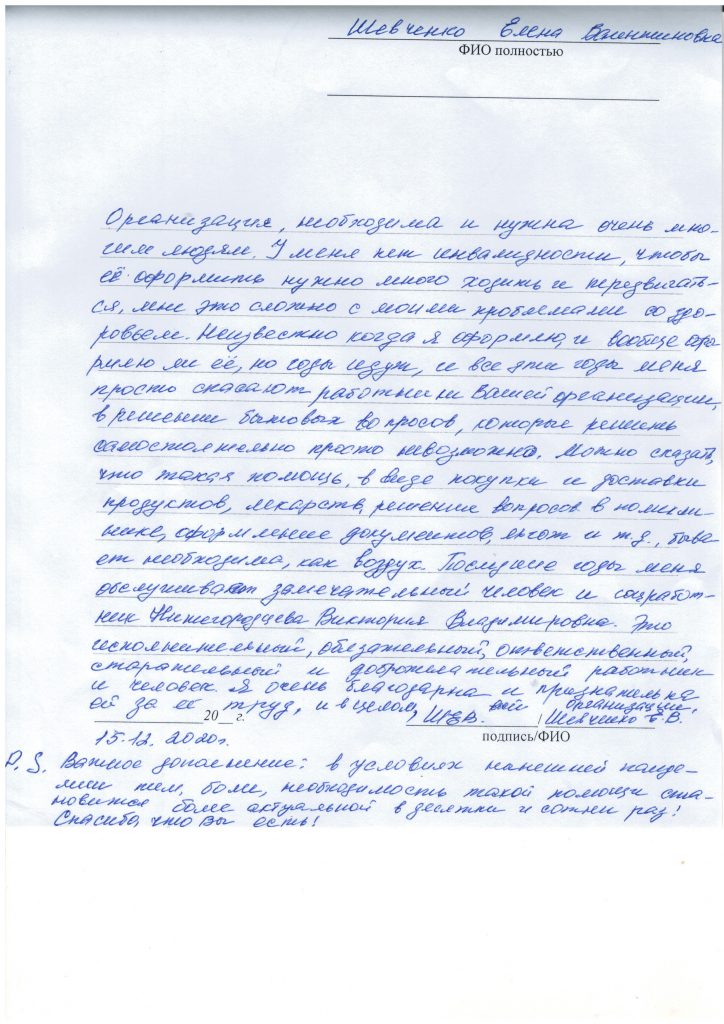 Шевченко Елена Валентиновна
ФИО полностью
Организация, необходима и нужна очень мно-
гим людям. У меня нет инвалидности, чтобы
её оформить нужно много ходить и передвигать-
ся, мне это сложно с моими проблемами со здо-
ровьем. Неизвестно когда я оформлю, и вообще офо
рмлю ли её, но годы идут, и все эти годы меня
просто спасают работники Вашей организации,
в решении бытовых вопросов, которые решить
самостоятельно просто невозможно. Можно сказать,
что такая помощь, в виде покупки и доставки
продуктов, лекарств, решения вопросов в поликли-
нике, оформление документов, льгот и т.д., быва
ет необходима, как воздух. Последние годы меня
обслуживает замечательный человек и соцработ-
ник Нижегородцева Виктория Владимировна. Это
исполнительный, обязательный, ответственный,
старательный и доброжелательный работник
и человек. Я очень благодарна и признательна
ей за её труд, и в целом, организации.
20 г. / Шевченко Е.В.
подпись/ФИО
15.12.2020г.
P.S. Важное дополнение: в условиях нынешней панде-
мии тем, более, необходимость такой помощи ста-
новится более актуальной в десятки и сотни раз!
Спасибо, что Вы есть!